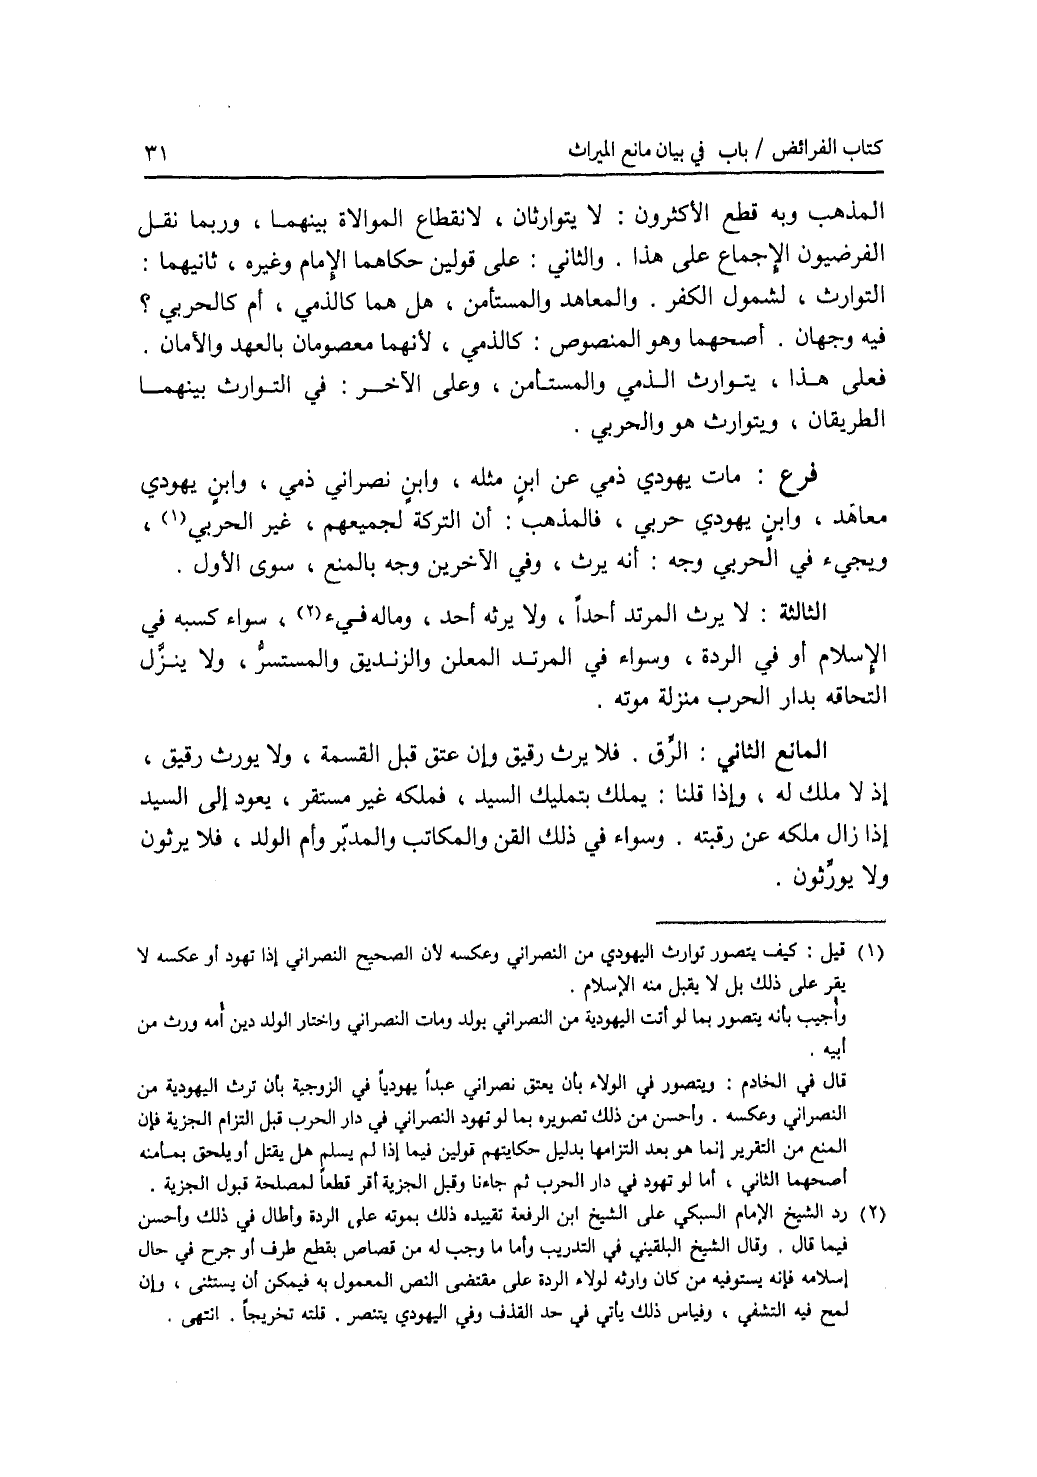 كتاب الفرائض / باب في بيان مانع الميراث ٣١
المذهب وبه قطع الأكثرون : لا يتوارثان ، لانقطاع الموالاة بينهما ، وربما نقل
الفرضيون الإجماع على هذا . والثاني : على قولين حكاهما الإمام وغيره ، ثانيهما :
التوارث ، لشمول الكفر . والمعاهد والمستأمن ، هل هما كالذمي ، أم كالحربي ؟
فيه وجهان . أصحهما وهو المنصوص : كالذمي ، لأنهما معصومان بالعهد والأمان .
فعلى هذا ، يتوارث الذمي والمستأمن ، وعلى الآخر : في التوارث بينهما
الطريقان ، ويتوارث هو والحربي .
فرع : مات يهودي ذمي عن ابنٍ مثله ، وابنٍ نصراني ذمي ، وابنٍ يهودي
معاهَد ، وابنٍ يهودي حربي ، فالمذهب : أن التركة لجميعهم ، غير الحربي(١) ،
ويجيء في الحربي وجه : أنه يرث ، وفي الآخرين وجه بالمنع ، سوى الأول .
الثالثة : لا يرث المرتد أحداً ، ولا يرثه أحد ، وماله فيء(٢) ، سواء كسبه في
الإسلام أو في الردة ، وسواء في المرتد المعلن والزنديق والمستسرُّ ، ولا ينزَّل
التحاقه بدار الحرب منزلة موته .
المانع الثاني : الرِّق . فلا يرث رقيق وإن عتق قبل القسمة ، ولا يورث رقيق ،
إذ لا ملك له ، وإذا قلنا : يملك بتمليك السيد ، فملكه غير مستقر ، يعود إلى السيد
إذا زال ملكه عن رقبته . وسواء في ذلك القن والمكاتب والمدبّر وأم الولد ، فلا يرثون
ولا يورَّثون .
(١) قيل : كيف يتصور توارث اليهودي من النصراني وعكسه لأن الصحيح النصراني إذا تهود أو عكسه لا
يقر على ذلك بل لا يقبل منه الإسلام .
وأجيب بأنه يتصور بما لو أتت اليهودية من النصراني بولد ومات النصراني واختار الولد دين أمه ورث من
أبيه .
قال في الخادم : ويتصور في الولاء بأن يعتق نصراني عبداً يهودياً في الزوجية بأن ترث اليهودية من
النصراني وعكسه . وأحسن من ذلك تصويره بما لو تهود النصراني في دار الحرب قبل التزام الجزية فإن
المنع من التقرير إنما هو بعد التزامها بدليل حكايتهم قولين فيما إذا لم يسلم هل يقتل أو يلحق بمأمنه
أصحهما الثاني ، أما لو تهود في دار الحرب ثم جاءنا وقبل الجزية أقر قطعاً لمصلحة قبول الجزية .
(٢) رد الشيخ الإمام السبكي على الشيخ ابن الرفعة تقييده ذلك بموته على الردة وأطال في ذلك وأحسن
فيما قال . وقال الشيخ البلقيني في التدريب وأما ما وجب له من قصاص بقطع طرف أو جرح في حال
إسلامه فإنه يستوفيه من كان وارثه لولاء الردة على مقتضى النص المعمول به فيمكن أن يستثنى ، وإن
لمح فيه التشفي ، وقياس ذلك يأتي في حد القذف وفي اليهودي يتنصر . قلته تخريجاً . انتهى .